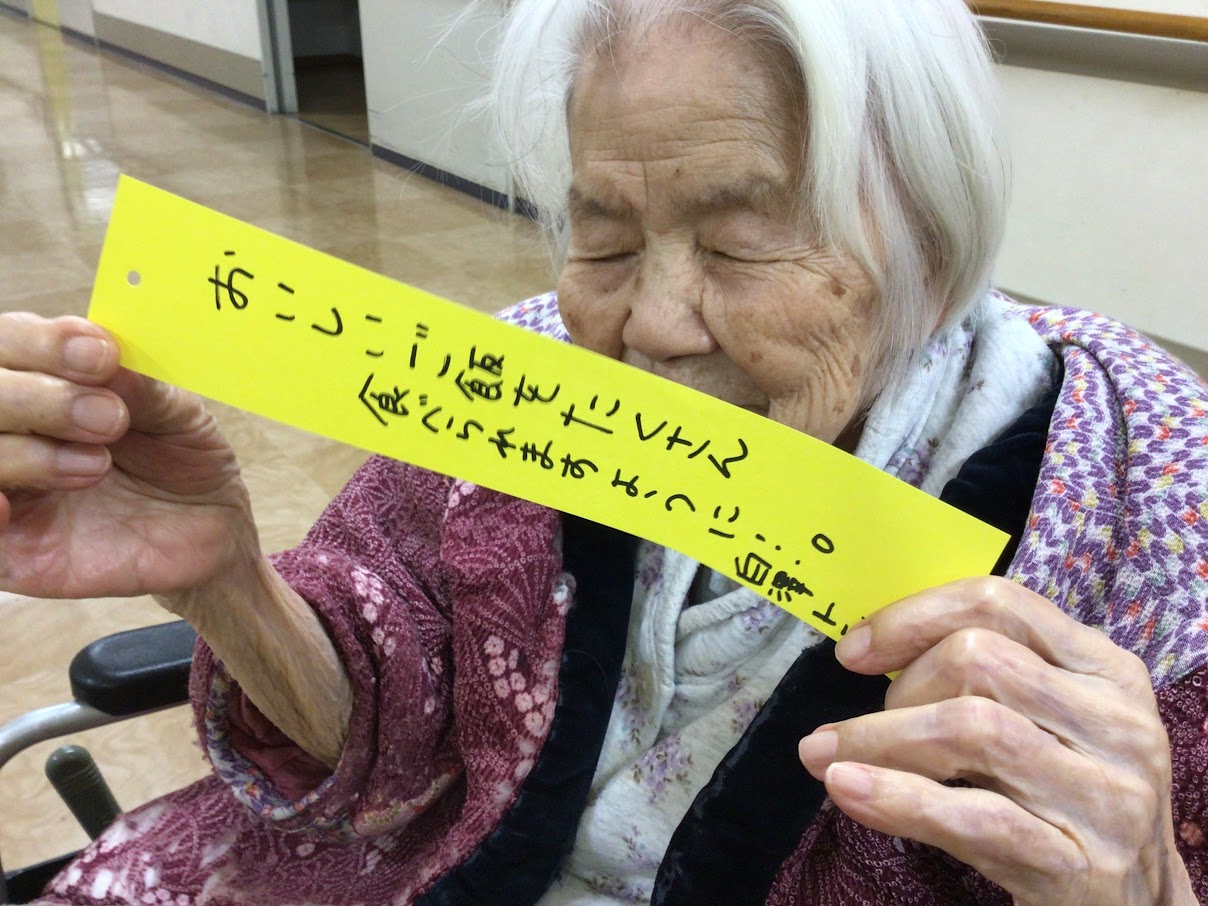 おいしいご飯をたくさん
食べられますように…。